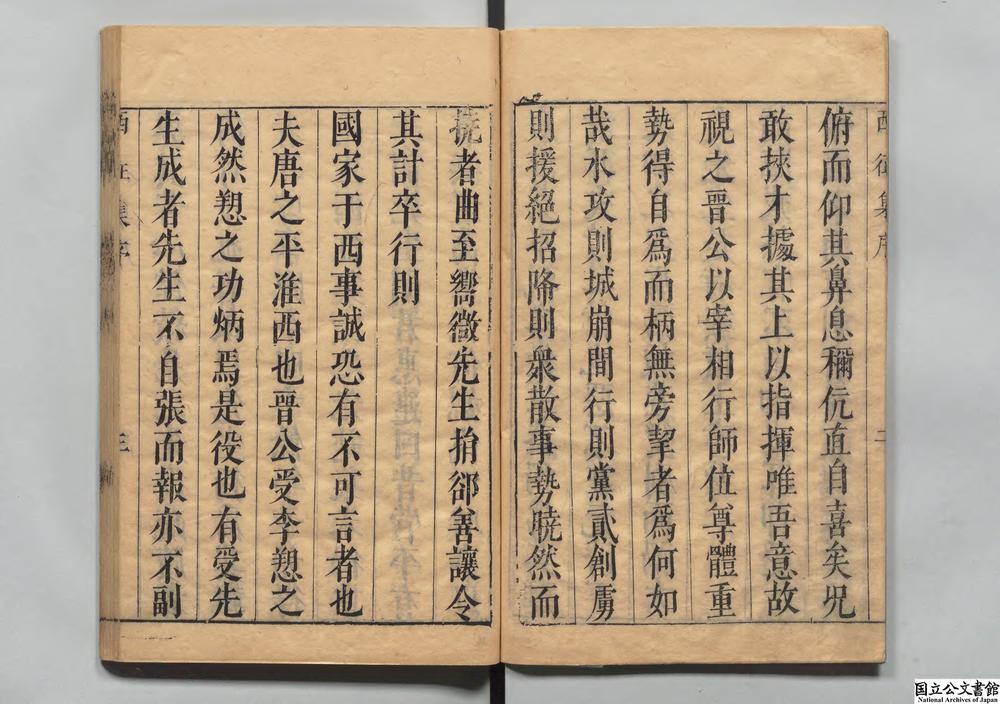 俯而仰其鼻息稱伉直自喜矣況
敢挾才據其上以指揮唯吾意故
視之晉公以宰相行師位尊體重
勢得自為而柄無旁挈者為何如
哉水攻則城崩間行則黨貳創虜
則援絕招降則衆散事勢曉然而
撓者曲至嚮微先生捐郤善讓令
其計卒行則
國家于西事誠恐有不可言者也
夫唐之平淮西也晉公受李愬之
成然愬之功炳焉是役也有受先
生成者先生不自張而報亦不副
西征集序
二
西征集序
三
国立公文書館
National Archives of Japan